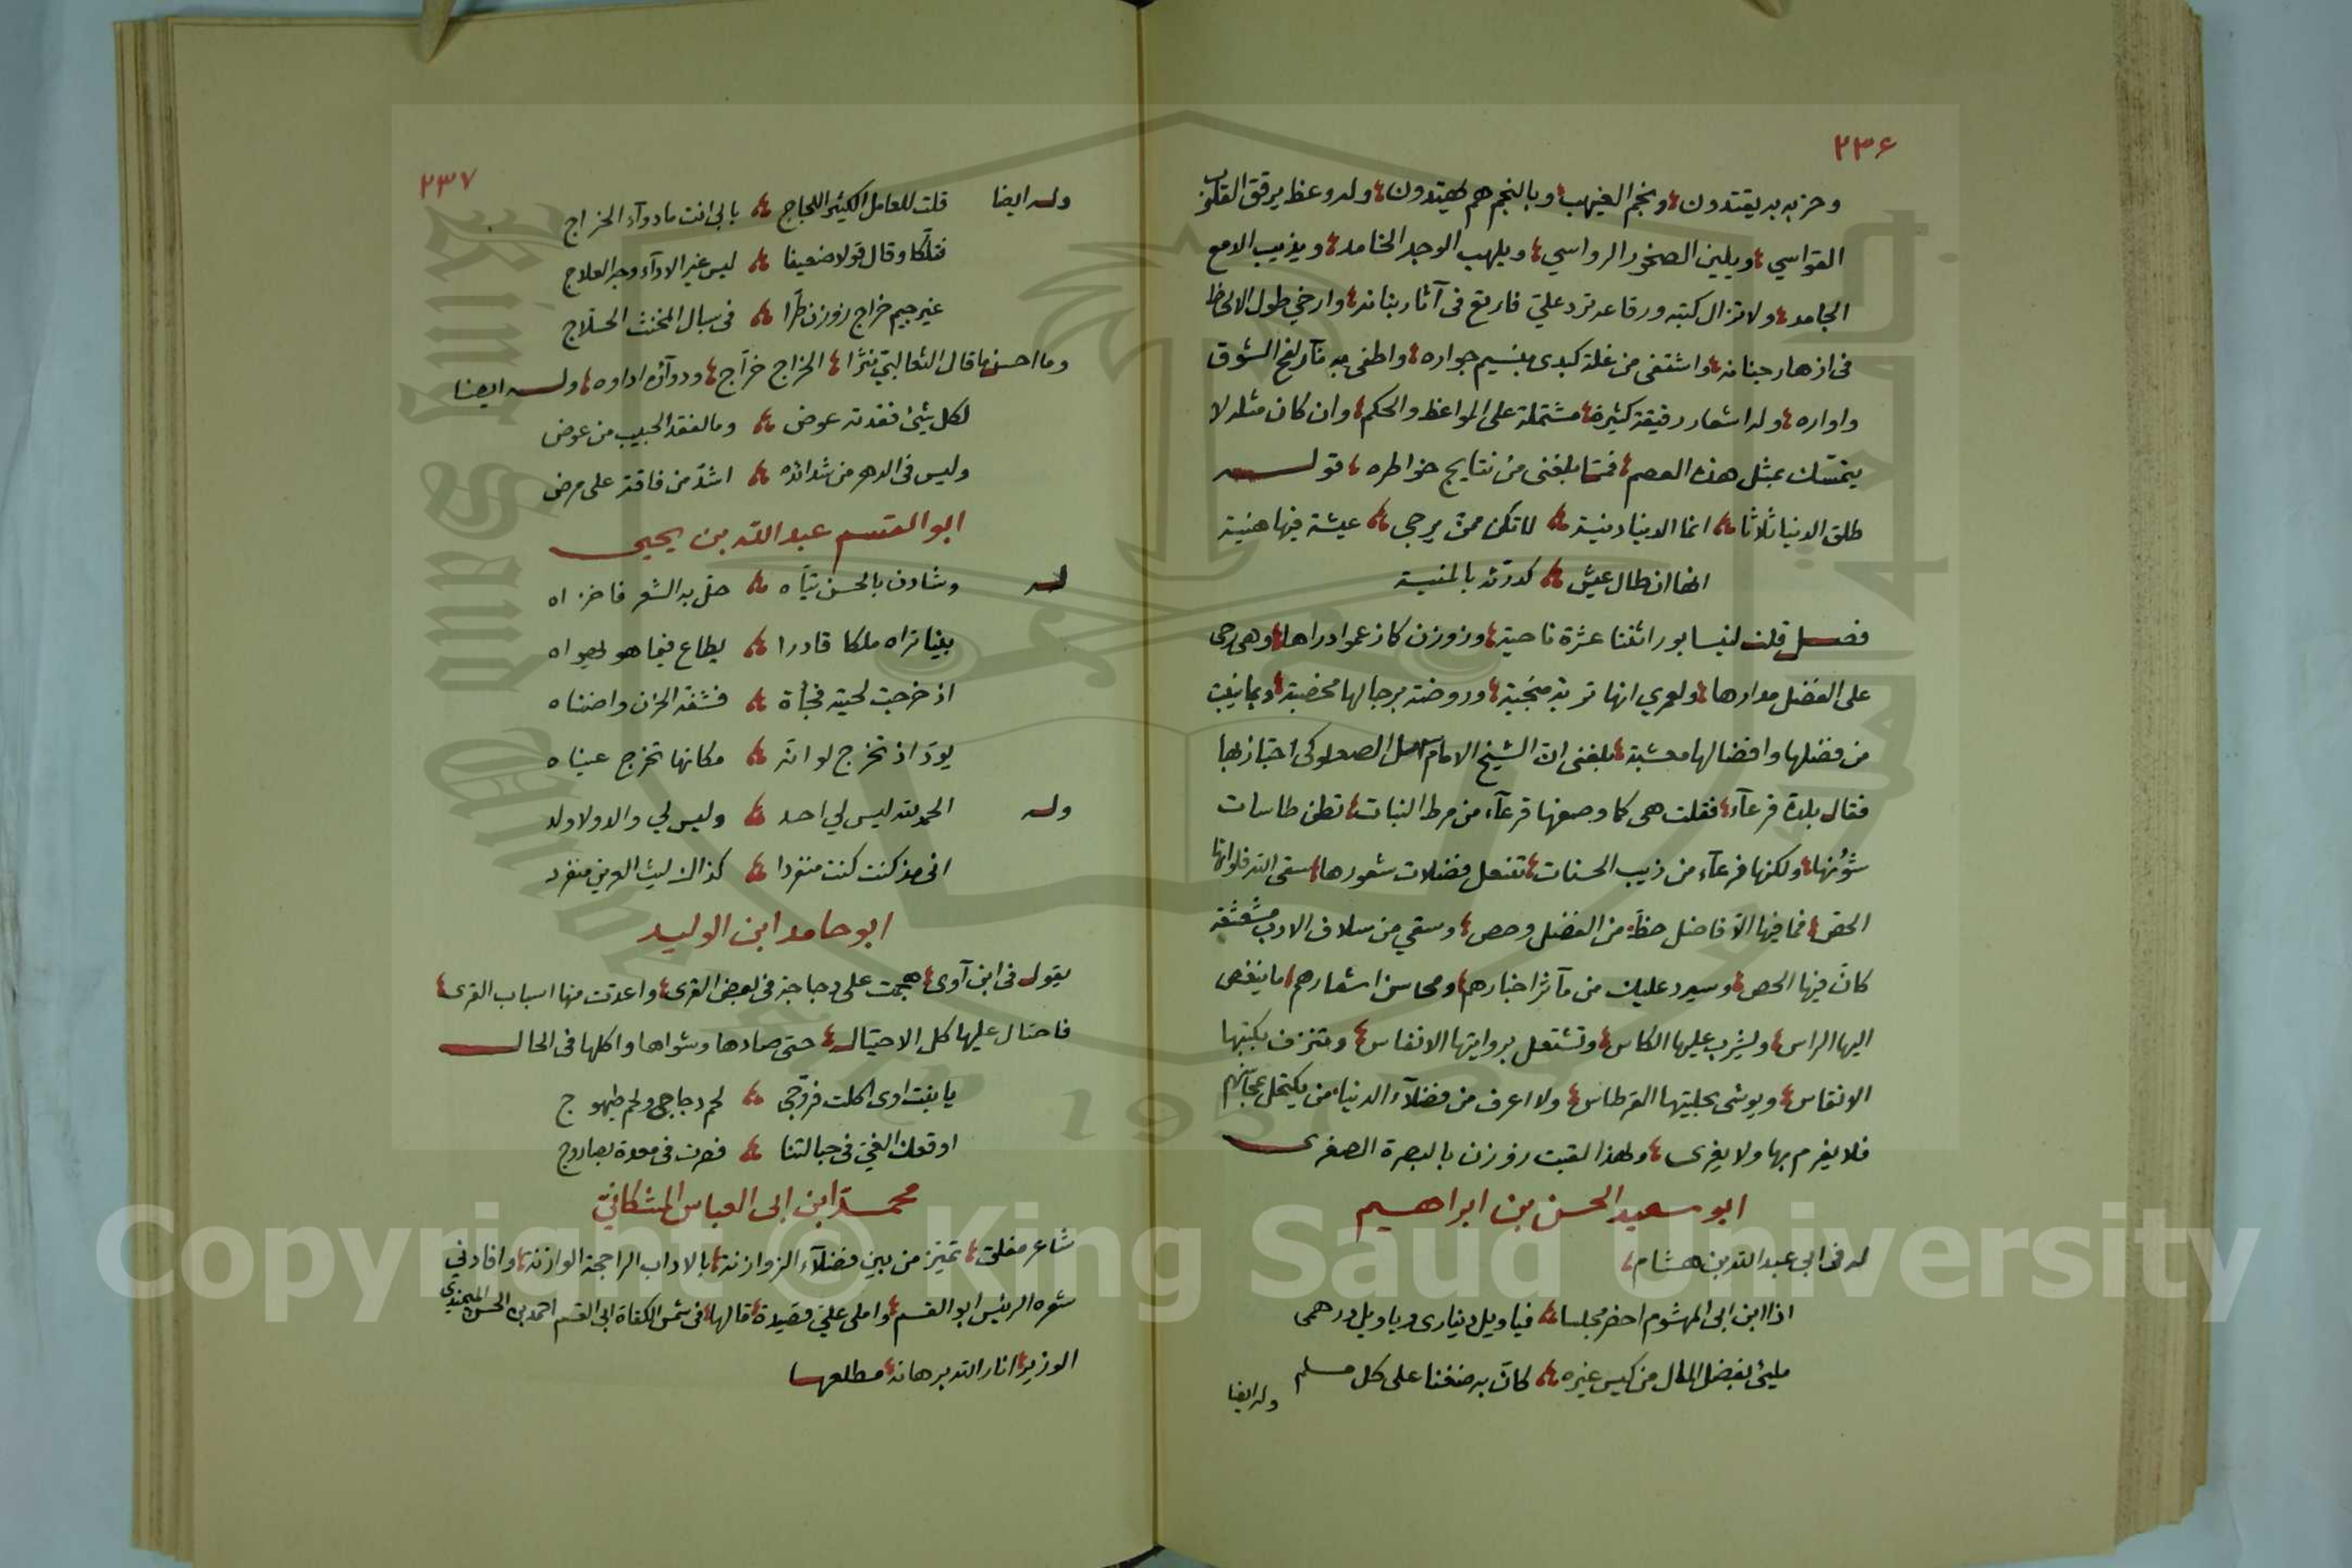 ٢٣٦
وحزبه به يقتدون وبنجم الغيهب وبالنجم هم يهتدون وله وعظ يرقق القلوب
القواسي ويلين الصخور الرواسي ويلهب الوجد الخامد ويذيب الدمع
الجامد ولا تزال كتبه ورقاعه ترد علي فارتع في آثار بنانه وارخي طول الالحاظ
في ازهار جنانه واشتفى من غلة كبدى بنسيم جواره واطفى به نآر لفح الشوق
واواره وله اشعار رقيقة كثيرة مشتملة على المواعظ والحكم وان كان مثله لا
يتمسك بمثل هذه العصم فمما بلغنى من نتايج خواطره قولـه
طلق الدنيا ثلاثا انما الدنيا دنية لا تكن ممن يرجى عيشة فيها هنية
انها ان طال عيش كدرته بالمنية
فصل قلت لنيسابور اثنتا عشرة ناحية وزوزن كاز عموا دراها وهى رحى
على الفضل مدارها ولعمري انها تربة منجبة وروضة برجالها مخصبة وبما ينبت
من فضلها وافضالها معشبة بلغنى ان الشيخ الامام سهل الصعلوكى اجتاز بها
فقال بلدة قرعآء فقلت هى كما وصفها قرعآء من مرط النبات تطن طاسات
شؤنها ولكنها فرعآء من ذيب الحسنات تنتعل فضلات شعورها سقى الله فلواتها
الحقن فما فيها الا فاضل حظه من الفضل وحص وسقي من سلاف الادب مشعشعة
كان فيها الحص وسيرد عليك من مآثر اخبارهم ومحاسن اشعارهم ما ينغص
اليها الراس ويشرب عليها الكاس وتشتعل بروايتها الانفاس وتنزف بكتبتها
الانقاس ويوشى بحليتها القرطاس ولا اعرف من فضلآء الدنيا من يكتحل بمحاسنهم
فلا يغرم بها ولا يغرى ولهذا لقبت زوزن بالبصرة الصغرى
ابو سعيد الحسن بن ابراهيم
له في ابي عبد الله بن هشام
اذا ابن ابى المهشوم احضر مجلسا فيا ويل دينارى ويا ويل درهمى
مليئ بفضل المال من كيس غيره كان به ضغنا على كل مسلم
وله ايضا
٢٣٧
وله ايضا قلت للعامل الكثير اللجاج بابى انت ما دوآء الخراج
فتلكا وقال قولا ضعيفا ليس غير الادآء وجه العلاج
غير جيم خراج زوزن طرا في سبال المخنث الحلاج
وما احسن ما قال الثعالبي نثرا الخراج خراج ودوآؤه اداوه ولـه ايضا
لكل شيئ فقدته عوض وما لفقد الحبيب من عوض
وليس في الدهر من شدائده اشد من فاقة على مرض
ابو القسم عبد الله بن يحيى
له وشادن بالحسن تياه حل به الشعر فاخزاه
بينا تراه ملكا قادرا يطاع فيما هو يهواه
اذ خرجت لحيته فجأة فشفه الحزن واضناه
يود اذ تخرج لو انه مكانها تخرج عيناه
وله الحمد لله ليس لي احد وليس لي والد ولا ولد
انى مذ كنت كنت منفردا كذاك ليث العرين منفرد
ابو حامد ابن الوليد
يقول في ابن آوى هجمت على دجاجة في بعض القرى واعدت منها اسباب القرى
فاحتال عليها كل الاحتيال حتى صادها وشواها واكلها في الحال
يا بنت اوى اكلت فروجى لحم دجاجى ولحم طيهوج
اوقعك الغي في حبالتنا فصرت في معدة بصاروج
محمد ابن ابى العباس المشكاني
شاعر مفلق تميز من بين فضلآء الزوازنة بالاداب الراجحة الوازنة وافادني
شعره الرئيس ابو القسم واملى علي قصيدة قالها في شمس الكفاة ابى القسم احمد بن الحسن الميمندي
الوزير انار الله برهانه مطلعها